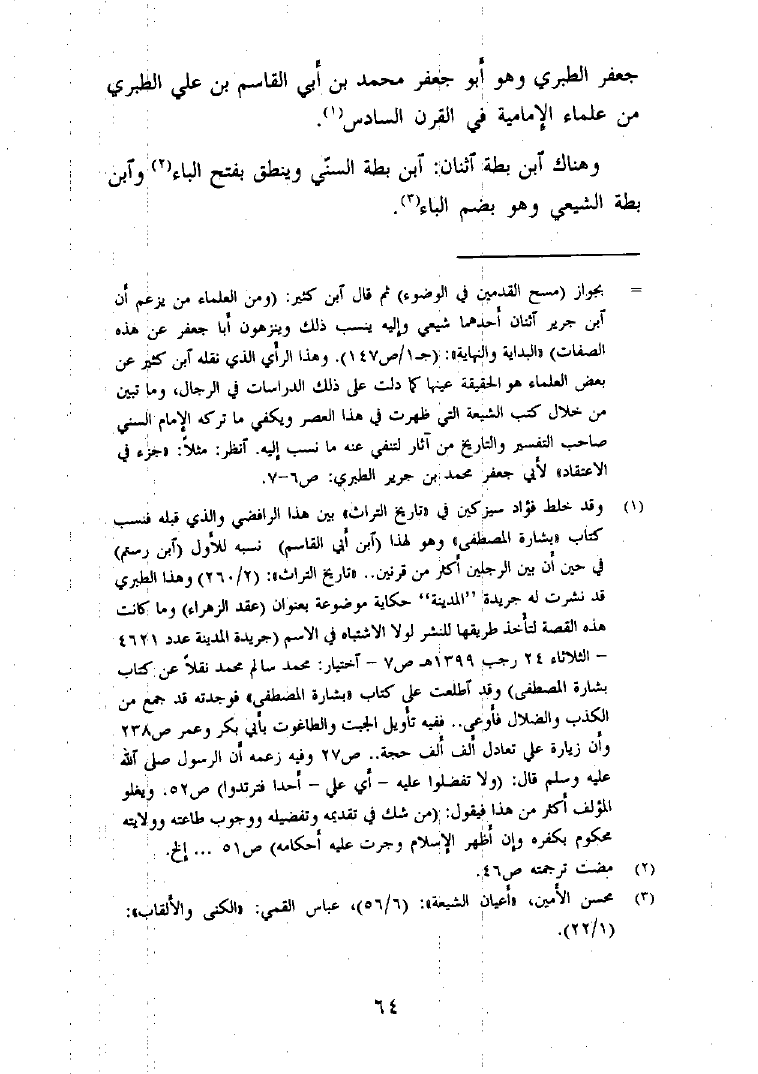 جعفر الطبري وهو أبو جعفر محمد بن أبي القاسم بن علي الطبري
من علماء الإمامية في القرن السادس(١).
وهناك آبن بطة آثنان: آبن بطة السنّي وينطق بفتح الباء(٢) وآبن
بطة الشيعي وهو بضم الباء(٣).
= بجواز (مسح القدمين في الوضوء) ثم قال آبن كثير: (ومن العلماء من يزعم أن
آبن جرير آثنان أحدهما شيعي وإليه ينسب ذلك وينزهون أبا جعفر عن هذه
الصفات) «البداية والنهاية»: (جـ١/ص١٤٧). وهذا الرأي الذي نقله آبن كثير عن
بعض العلماء هو الحقيقة عينها كما دلت على ذلك الدراسات في الرجال، وما تبين
من خلال كتب الشيعة التي ظهرت في هذا العصر ويكفي ما تركه الإمام السني
صاحب التفسير والتاريخ من آثار لتنفي عنه ما نسب إليه. آنظر: مثلاً: «جزء في
الاعتقاد» لأبي جعفر محمد بن جرير الطبري: ص٦-٧.
(١) وقد خلط فؤاد سيزكين في «تاريخ التراث» بين هذا الرافضي والذي قبله فنسب
كتاب «بشارة المصطفى» وهو لهذا (ابن أبي القاسم) نسبه للأول (آبن رستم)
في حين أن بين الرجلين أكثر من قرنين.. «تاريخ التراث»: (٢/٢٦٠) وهذا الطبري
قد نشرت له جريدة "المدينة" حكاية موضوعة بعنوان (عقد الزهراء) وما كانت
هذه القصة لتأخذ طريقها للنشر لولا الاشتباه في الاسم (جريدة المدينة عدد ٤٦٢١
- الثلاثاء ٢٤ رجب ١٣٩٩هـ ص٧ - آختيار: محمد سالم محمد نقلاً عن كتاب
بشارة المصطفى) وقد آطلعت على كتاب «بشارة المصطفى» فوجدته قد جمع من
الكذب والضلال فأوعى.. ففيه تأويل الجبت والطاغوت بأبي بكر وعمر ص٢٣٨
وأن زيارة علي تعادل ألف ألف حجة.. ص٢٧ وفيه زعمه أن الرسول صلى آلله
عليه وسلم قال: (ولا تفضلوا عليه - أي علي - أحدا فترتدوا) ص٥٢. ويغلو
المؤلف أكثر من هذا فيقول: (من شك في تقديمه وتفضيله ووجوب طاعته وولايته
محكوم بكفره وإن أظهر الإسلام وجرت عليه أحكامه) ص٥١ ... إلخ.
(٢) مضت ترجمته ص٤٦.
(٣) محسن الأمين، «أعيان الشيعة»: (٥٦/٦)، عباس القمي: «الكنى والألقاب»:
(٢٢/١).
٦٤